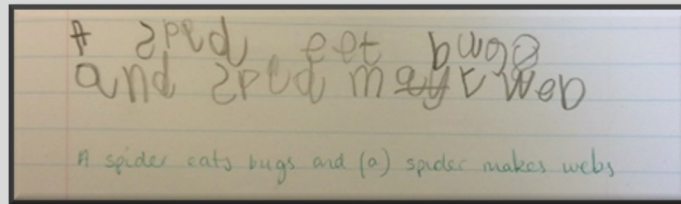 A spid eet bugs
and spid mayk web
A spider eats bugs and (a) spider makes webs